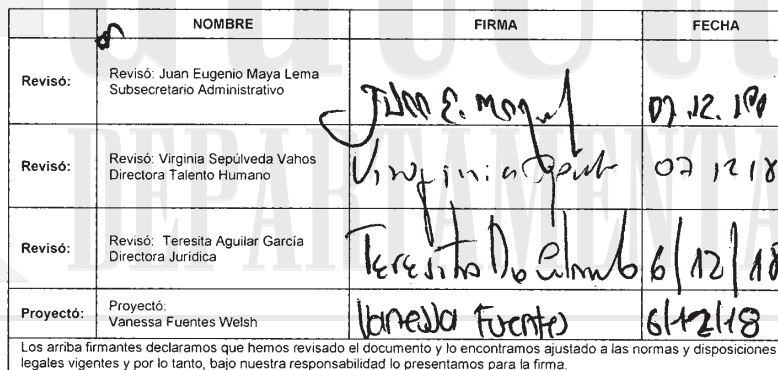 NOMBRE FIRMA FECHA
Revisó: Revisó: Juan Eugenio Maya Lema
Subsecretario Administrativo
Juan E. Maya L 07.12.18
Revisó: Revisó: Virginia Sepúlveda Vahos
Directora Talento Humano
Virginia 07 12 18
Revisó: Revisó: Teresita Aguilar García
Directora Jurídica
Teresita 6/12/18
Proyectó: Proyectó:
Vanessa Fuentes Welsh
Vanessa Fuentes 6/12/18
Los arriba firmantes declaramos que hemos revisado el documento y lo encontramos ajustado a las normas y disposiciones
legales vigentes y por lo tanto, bajo nuestra responsabilidad lo presentamos para la firma.
DEPARTAMENTA